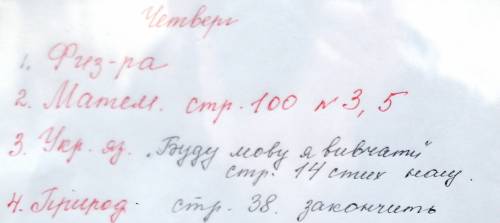 Четверг
1. Физ-ра
2. Матем. стр. 100 №3, 5
3. Укр. яз. „Буду мову я вивчати"
стр. 14 стих
4. Природ. стр. 38. закончить